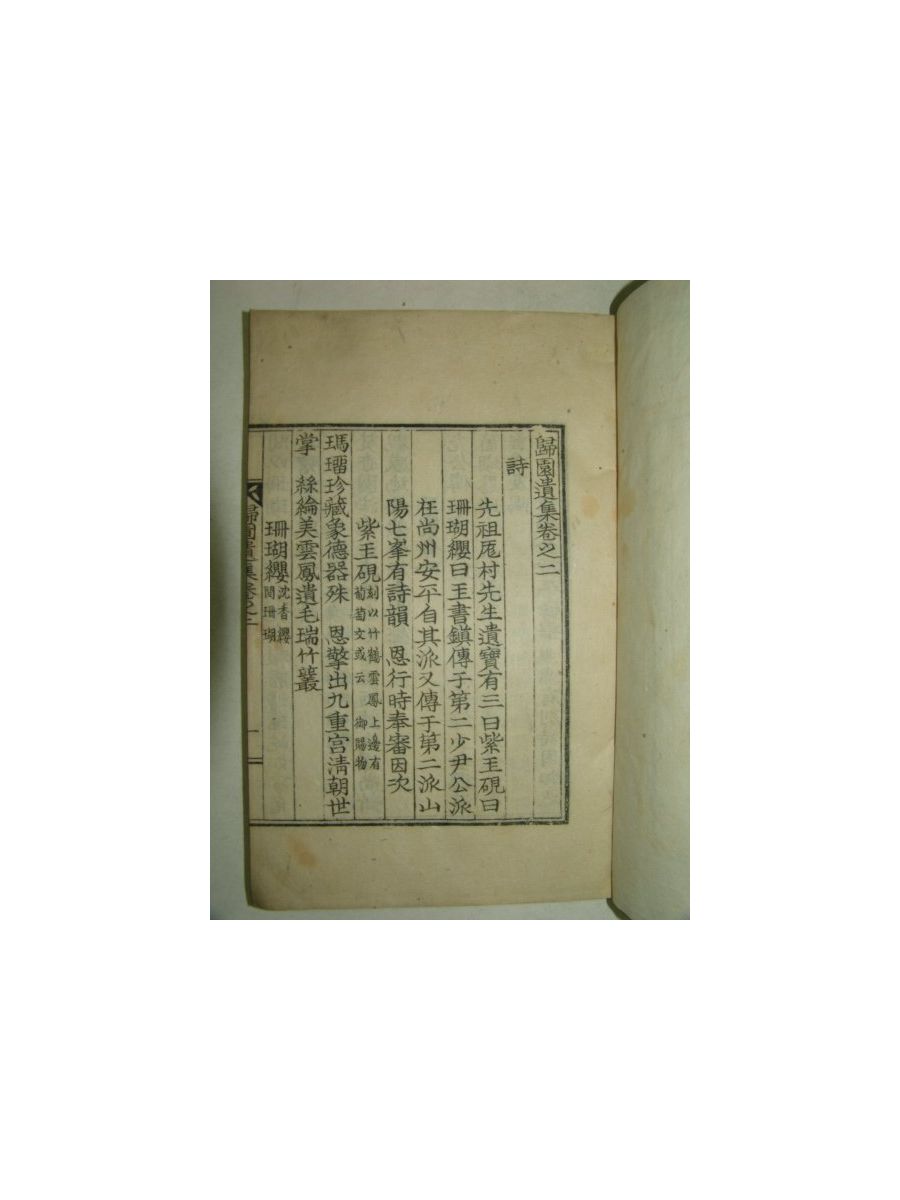 歸園遺集卷之二
詩
先祖厖村先生遺寶有三曰紫玉硯曰
珊瑚纓曰玉書鎭傳子第二少尹公派
在尙州安平自其派又傳于第二派山
陽七峯有詩韻 恩行時奉審因次
紫玉硯 刻以竹鶴雲鳳上邊有
葡萄文或云 御賜物
瑪瑠珍藏象德器殊 恩擎出九重宮淸朝世
掌 絲綸美雲鳳遺毛瑞竹叢
珊瑚纓 沈香纓
間珊瑚
歸園遺集卷之二
一